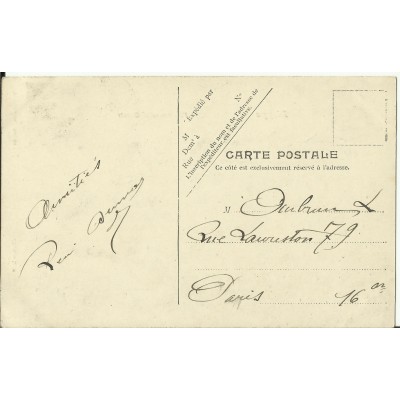 Amitiés
René
M Expédié par
Dem^t à
Rue N^o
L'inscription du nom et de l'adresse de
l'expéditeur est facultative.
CARTE POSTALE
Ce côté est exclusivement réservé à l'adresse.
M
Rue Lauriston 79
Paris 16 en